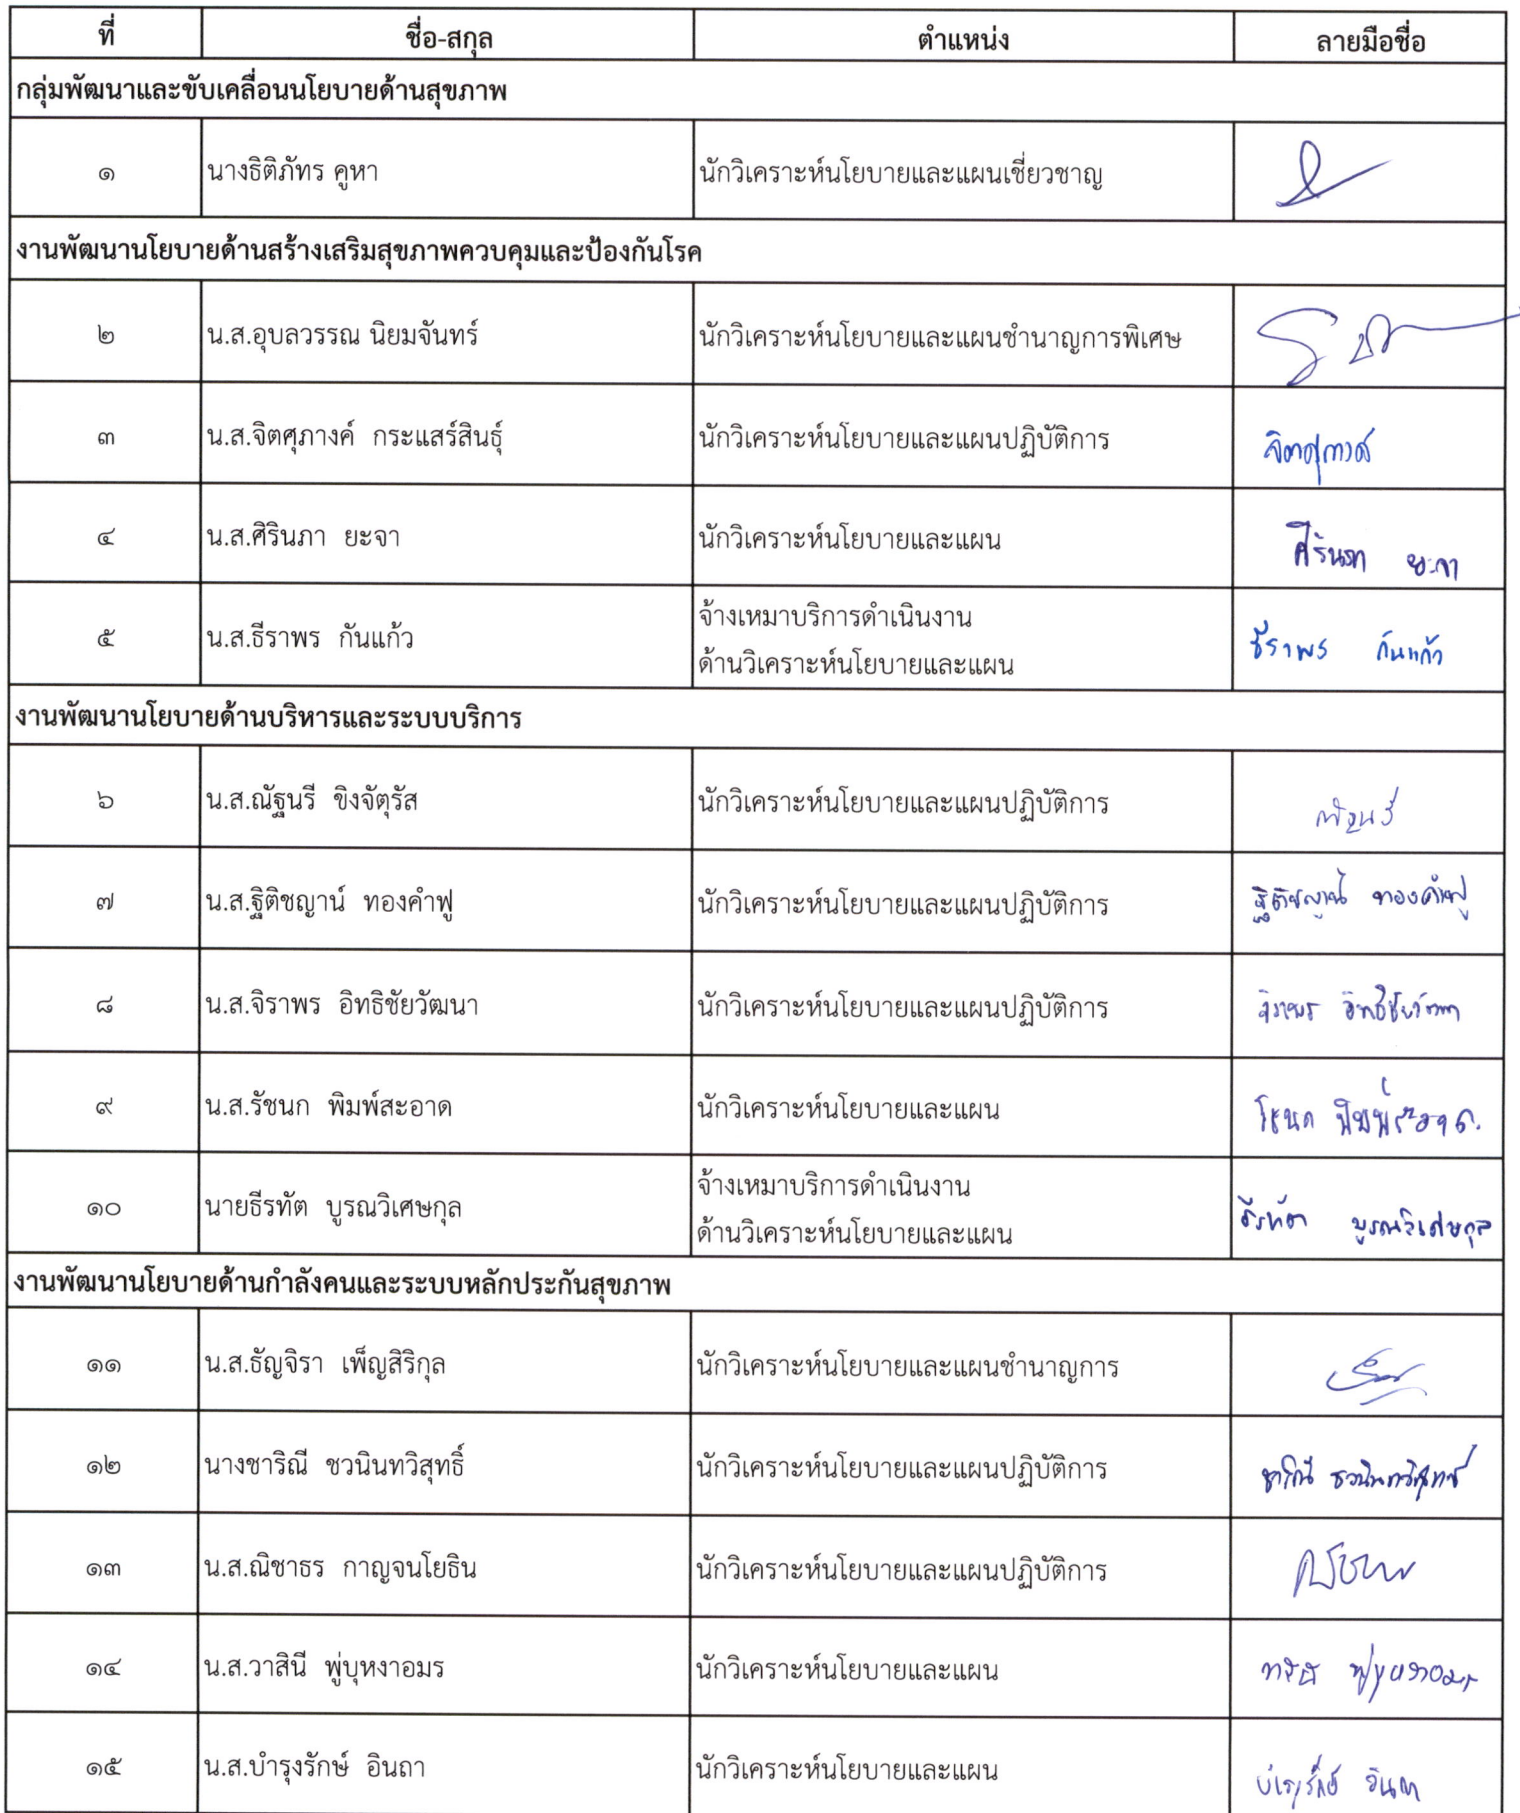 ที่ ชื่อ-สกุล ตำแหน่ง ลายมือชื่อ
กลุ่มพัฒนาและขับเคลื่อนนโยบายด้านสุขภาพ
๑ นางธิติภัทร คูหา นักวิเคราะห์นโยบายและแผนเชี่ยวชาญ
งานพัฒนานโยบายด้านสร้างเสริมสุขภาพควบคุมและป้องกันโรค
๒ น.ส.อุบลวรรณ นิยมจันทร์ นักวิเคราะห์นโยบายและแผนชำนาญการพิเศษ
๓ น.ส.จิตศุภางค์ กระแสร์สินธุ์ นักวิเคราะห์นโยบายและแผนปฏิบัติการ จิตศุภางค์
๔ น.ส.ศิรินภา ยะจา นักวิเคราะห์นโยบายและแผน ศิรินภา ยะจา
๕ น.ส.ธีราพร กันแก้ว จ้างเหมาบริการดำเนินงาน ธีราพร กันแก้ว
ด้านวิเคราะห์นโยบายและแผน
งานพัฒนานโยบายด้านบริหารและระบบบริการ
๖ น.ส.ณัฐนรี ขิงจัตุรัส นักวิเคราะห์นโยบายและแผนปฏิบัติการ ณัฐนรี
๗ น.ส.ฐิติชญาน์ ทองคำฟู นักวิเคราะห์นโยบายและแผนปฏิบัติการ ฐิติชญาน์ ทองคำฟู
๘ น.ส.จิราพร อิทธิชัยวัฒนา นักวิเคราะห์นโยบายและแผนปฏิบัติการ จิราพร อิทธิชัยวัฒนา
๙ น.ส.รัชนก พิมพ์สะอาด นักวิเคราะห์นโยบายและแผน รัชนก พิมพ์สะอาด
๑๐ นายธีรทัต บูรณวิเศษกุล จ้างเหมาบริการดำเนินงาน ธีรทัต บูรณวิเศษกุล
ด้านวิเคราะห์นโยบายและแผน
งานพัฒนานโยบายด้านกำลังคนและระบบหลักประกันสุขภาพ
๑๑ น.ส.ธัญจิรา เพ็ญสิริกุล นักวิเคราะห์นโยบายและแผนชำนาญการ
๑๒ นางชาริณี ชวนินทวิสุทธิ์ นักวิเคราะห์นโยบายและแผนปฏิบัติการ ชาริณี ชวนินทวิสุทธิ์
๑๓ น.ส.ณิชาธร กาญจนโยธิน นักวิเคราะห์นโยบายและแผนปฏิบัติการ
๑๔ น.ส.วาสินี พู่บุหงาอมร นักวิเคราะห์นโยบายและแผน วาสินี พู่บุหงาอมร
๑๕ น.ส.บำรุงรักษ์ อินถา นักวิเคราะห์นโยบายและแผน บำรุงรักษ์ อินถา